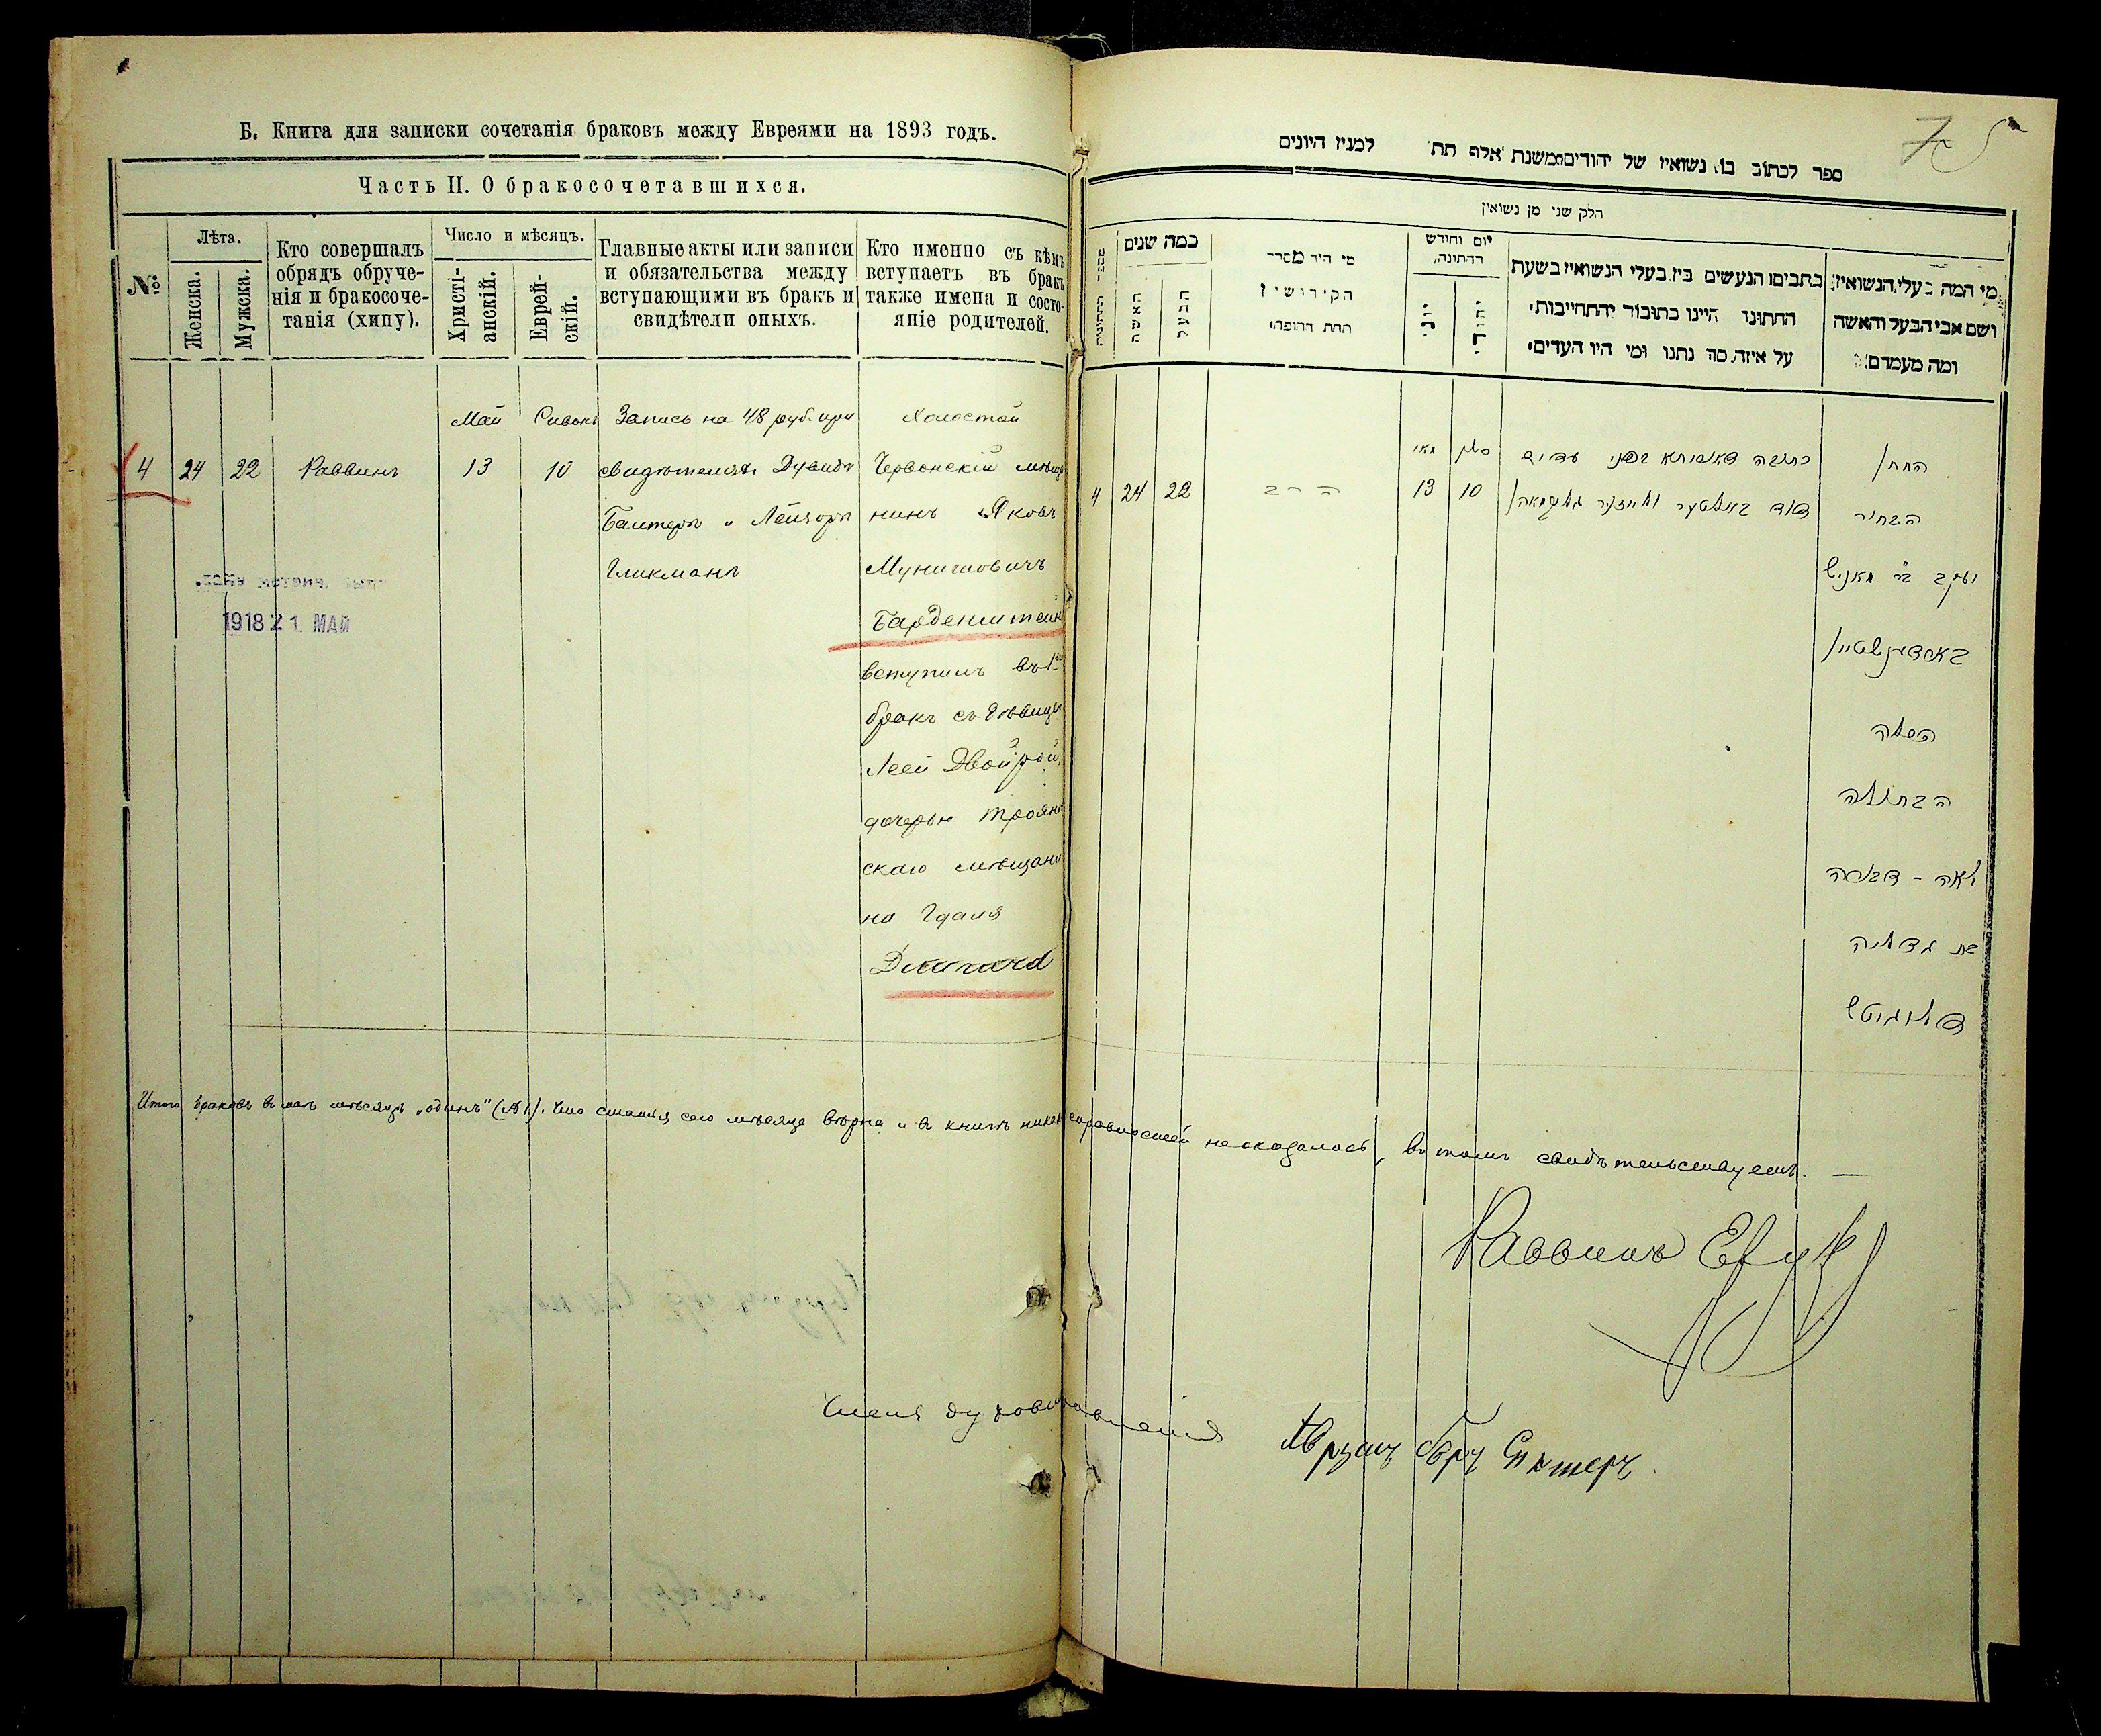 Б. Книга для записки сочетанія браковъ между Евреями на 1893 годъ.
Часть II. О бракосочетавшихся.
№
Лѣта.
Женска.
Мужска.
Кто совершалъ
обрядъ обруче-
нія и бракосоче-
танія (хипу).
Число и мѣсяцъ.
Христі-
анскій.
Еврей-
скій.
Главные акты или записи
и обязательства между
вступающими въ бракъ и
свидѣтели оныхъ.
Кто именно съ кѣмъ
вступаетъ въ бракъ
также имена и состо-
яніе родителей.
4
24
22
Раввинъ
Май
13
Сивонъ
10
Запись на 48 руб. при
свидѣтеляхъ Дувидъ
Балтеръ и Лейзоръ
Гликманъ
Холостой
Червонскій мѣща
нинъ Яковъ
Мунишовичъ
Барденштейн
вступилъ въ 1й
бракъ съ дѣвицею
Леей Двойрой,
дочерью Троян
скаго мѣщани
на Гдаля
1918 21. МАЙ
Итого браковъ въ маѣ мѣсяцѣ „одинъ" (№1). Что статья сего мѣсяца вѣрна и въ книгѣ никакихъ неправностей не оказалось, въ томъ свидѣтельствуетъ. —
Раввинъ
Члены дух. правленія
75
ספר לכתוב בו נשואין של יהודים משנת אלף תת למנין היונים
חלק שני מן נשואין
כמה שנים
האשה
הבעל
מי היה מסדר
הקידושין
תחת החופה
יום וחודש
החתונה
יוני
יהודי
כתבים הנעשים בין בעלי הנשואין בשעת
החתונה היינו כתובות והתחייבות
על איזה סך נתנו ומי היו העדים
מי המה בעלי הנשואין
ושם אבי הבעל והאשה
ומה מעמדם
4
24
22
הרב
מאי
13
סיון
10
כתובה דאורייתא בפני עדים
דוד באלטער ולייזער גליקמאן
החתן
הבחור
יעקב ב״ר מאניש
בארדענשטיין
הכלה
הבתולה
לאה - דבורה
בת גדליה